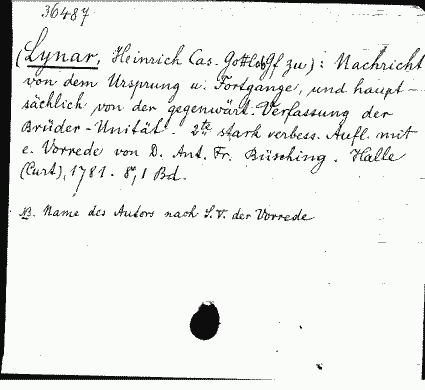 36487
(Lynar, Heinrich Cas. Gottlob Gf zu): Nachricht
von dem Ursprung u. Fortgange, und haupt-
sächlich von der gegenwärt. Verfassung der
Brüder-Unität. 2te stark verbess. Aufl. mit
e. Vorrede von D. Ant. Fr. Büsching. Halle
(Curt), 1781. 8°, 1 Bd.
NB. Name des Autors nach S. V. der Vorrede